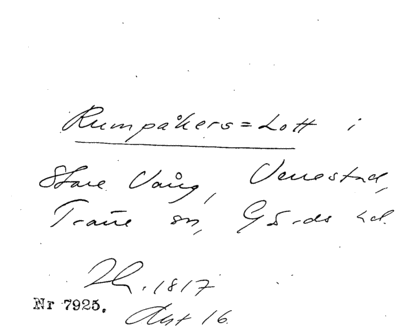 Rumpåkers=Lott i
Stare Vång, Venestad,
Träne sn, Gärds hd.
Lh. 1817
Nr 7925. Akt 16